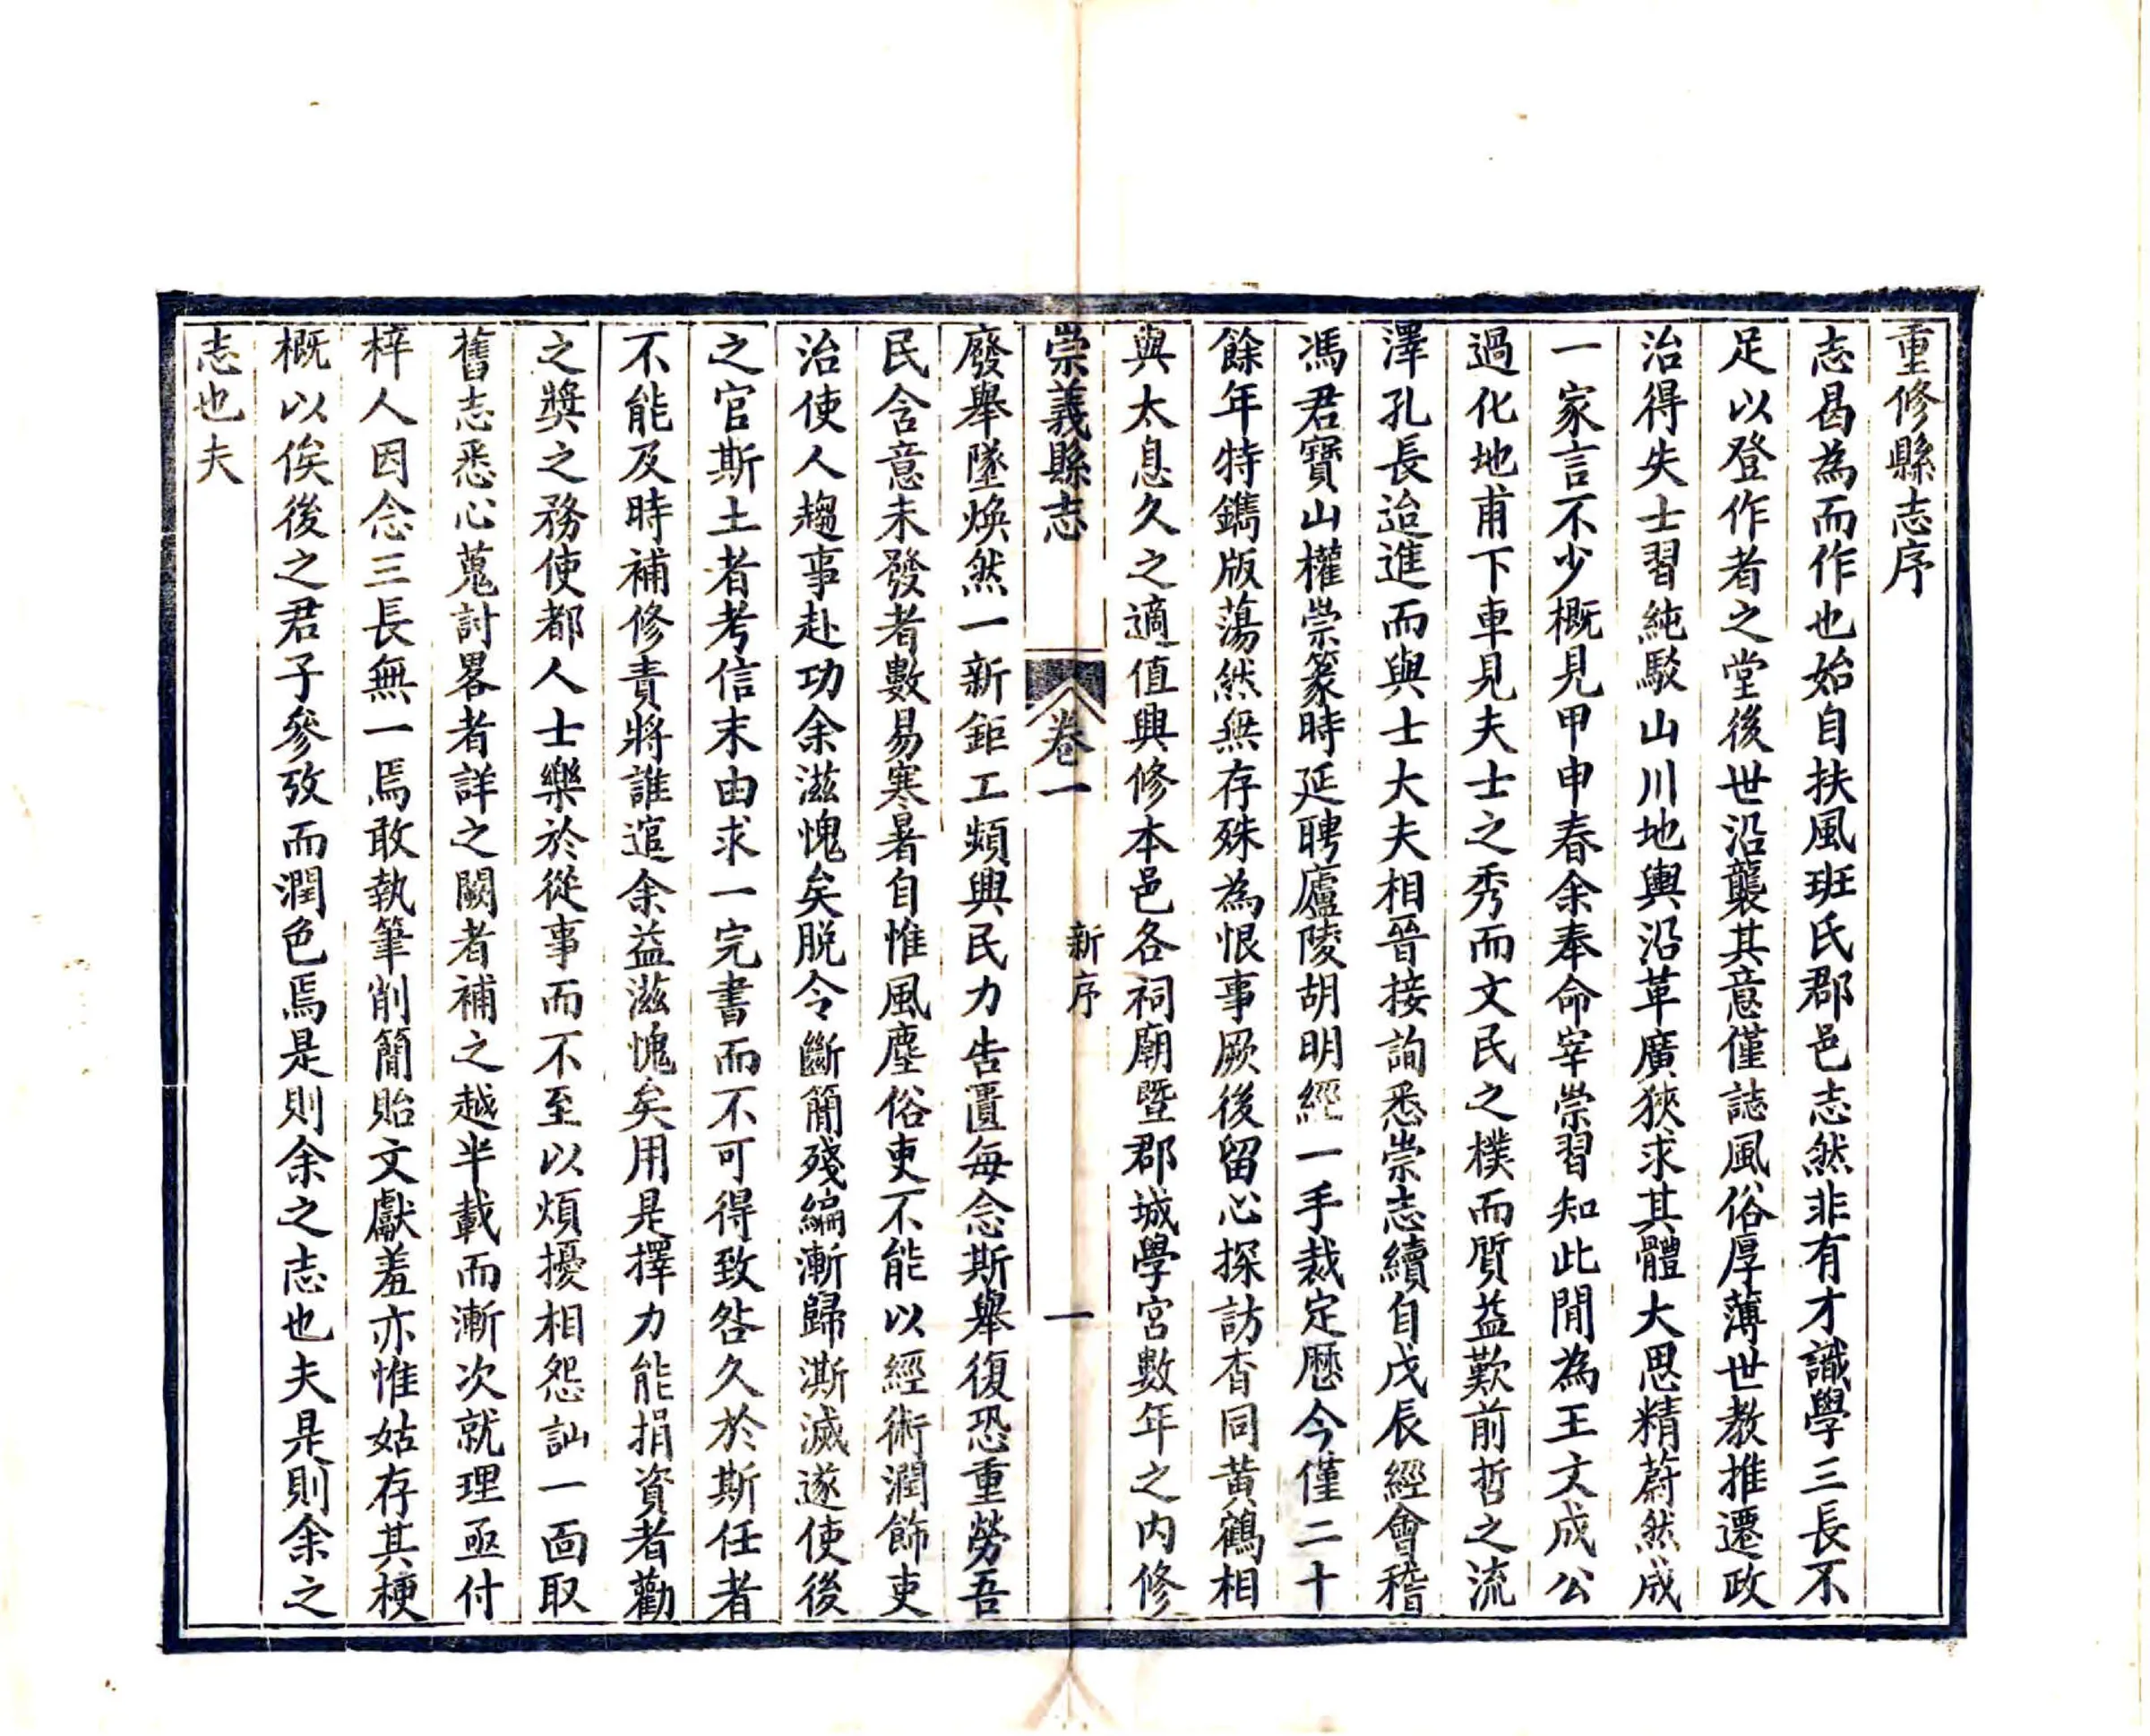 重修縣志序
志曷為而作也始自扶風班氏郡邑志然非有才識學三長不
足以登作者之堂後世沿襲其意僅誌風俗厚薄世教推遷政
治得失士習純駁山川地輿沿革廣狹求其體大思精蔚然成
一家言不少概見甲申春余奉命宰崇習知此間為王文成公
過化地甫下車見夫士之秀而文民之樸而質益歎前哲之流
澤孔長迨進而與士大夫相晉接詢悉崇志續自戊辰經會稽
馮君寶山權崇篆時延聘廬陵胡明經一手裁定歷今僅二十
餘年特鐫版蕩然無存殊為恨事厥後留心探訪杳同黃鶴相
與太息久之適值興修本邑各祠廟暨郡城學宮數年之內修
崇義縣志
卷一
新序
一
廢舉墜煥然一新鉅工頻興民力告匱每念斯舉復恐重勞吾
民含意未發者數易寒暑自惟風塵俗吏不能以經術潤飾吏
治使人趨事赴功余滋愧矣脫令斷簡殘編漸歸澌滅遂使後
之官斯土者考信末由求一完書而不可得致咎久於斯任者
不能及時補修責將誰逭余益滋愧矣用是擇力能捐資者勸
之獎之務使都人士樂於從事而不至以煩擾相怨訕一面取
舊志悉心蒐討畧者詳之闕者補之越半載而漸次就理亟付
梓人因念三長無一焉敢執筆削簡貽文獻羞亦惟姑存其梗
概以俟後之君子參攷而潤色焉是則余之志也夫是則余之
志也夫